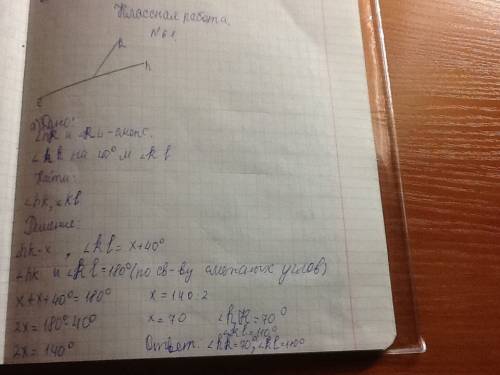 Классная работа.
№61.
k
h
l
а) Дано:
∠hk и ∠kl - смеж.
∠hk на 40° м ∠kl
Найти:
∠hk, ∠kl
Решение:
∠hk-x , ∠kl = x+40°
∠hk и ∠kl=180° (по св-ву смежных углов)
x+x+40°=180° x=140:2
2x=180°-40° x=70 ∠hk=70°
∠kl=110°
2x=140° Ответ: ∠hk=70°, ∠kl=110°